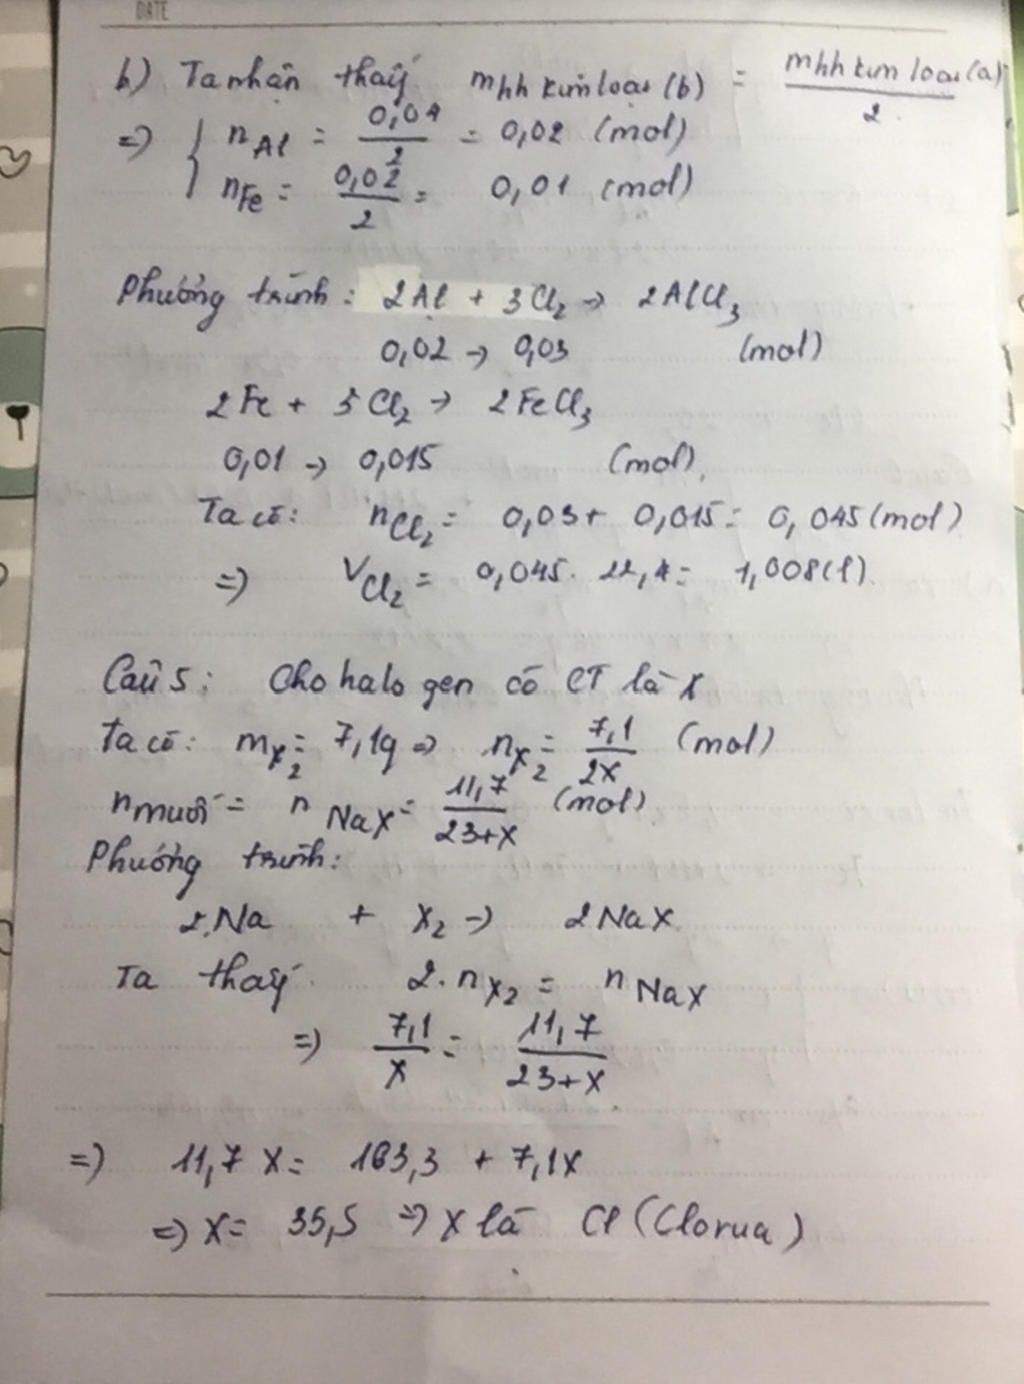 DATE
b) Ta nhận thấy mhh kim loại (b) = mhh kim loại (a) / 2
=> { nAl = 0,04 / 2 = 0,02 (mol)
nFe = 0,02 / 2 = 0,01 (mol)
Phương trình: 2Al + 3Cl2 -> 2AlCl3
0,02 -> 0,03 (mol)
2Fe + 3Cl2 -> 2FeCl3
0,01 -> 0,015 (mol)
Ta có: nCl2 = 0,03 + 0,015 = 0,045 (mol)
=> VCl2 = 0,045. 22,4 = 1,008 (l)
Câu 5: Cho halogen có CT là X
Ta có: mX2 = 7,1g => nX2 = 7,1 / 2X (mol)
nmuối = nNaX = 11,7 / 23+X (mol)
Phương trình:
2.Na + X2 -> 2NaX
Ta thấy 2.nX2 = nNaX
=> 7,1 / X = 11,7 / 23+X
=> 11,7 X = 163,3 + 7,1X
=> X = 35,5 => X là Cl (Clorua)